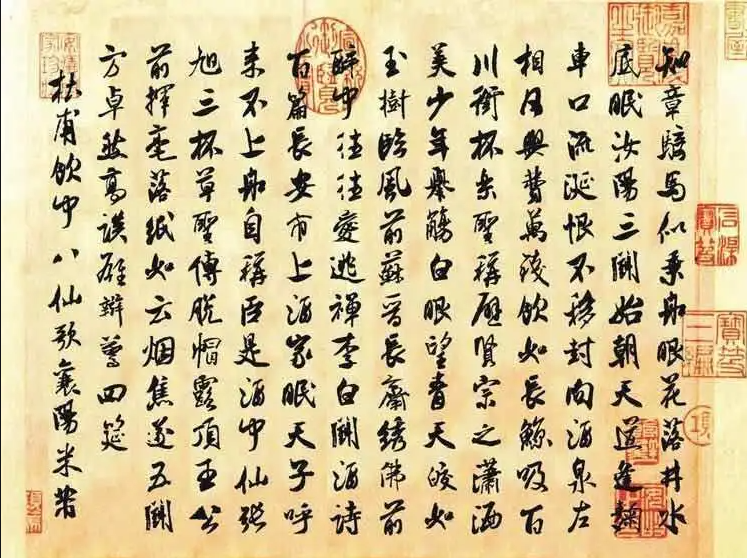 知章騎馬似乘船眼花落井水
底眠汝陽三鬥始朝天道逢麴
車口流涎恨不移封向酒泉左
相日興費萬錢飲如長鯨吸百
川銜杯樂聖稱避賢宗之瀟洒
美少年舉觴白眼望青天皎如
玉樹臨風前蘇晉長齋綉佛前
醉中往往愛逃禪李白鬥酒詩
百篇長安市上酒家眠天子呼
来不上船自稱臣是酒中仙張
旭三杯草聖傳脫帽露頂王公
前揮毫落紙如云烟焦遂五鬥
方卓然高談雄辯驚四筵
杜甫飲中八仙歌襄陽米芾